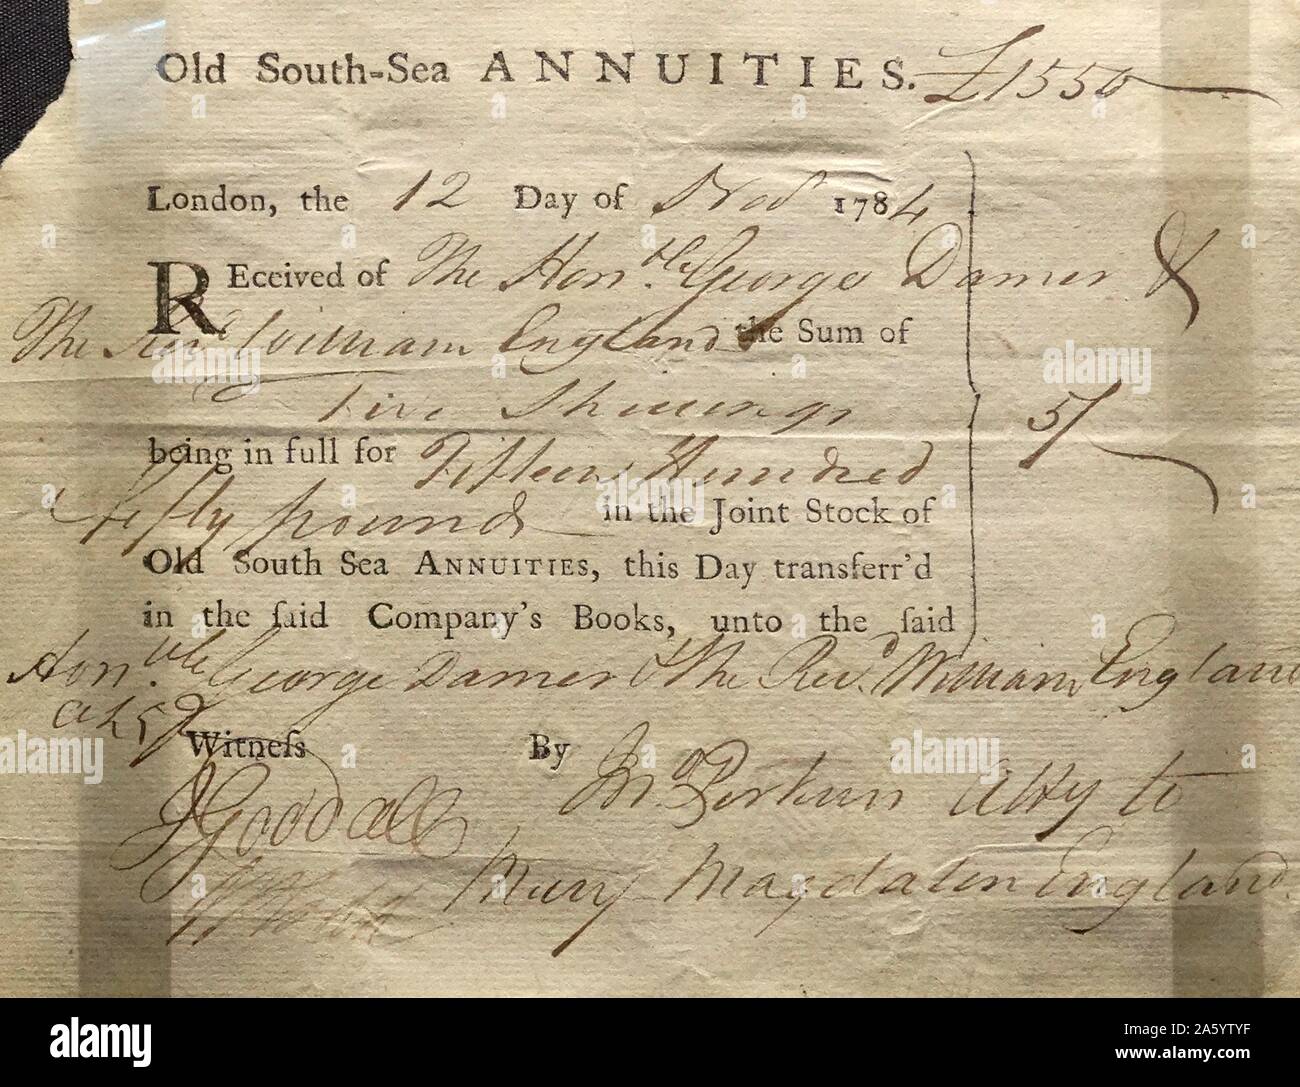 Old South-Sea ANNUITIES. £1550
London, the 12 Day of Nov 1784
REceived of The Hon.ble George Damer &
The Revd William England the Sum of
Five Shillings 5/
being in full for Fifteen Hundred
& fifty pounds in the Joint Stock of
Old South Sea ANNUITIES, this Day transferr'd
in the ſaid Company's Books, unto the ſaid
Hon.ble George Damer & The Revd. William England
Witneſs By Jno. Perkins Atty to
J Goodall
Mary Magdalen England
alamy
Image ID: 2A5YTYF
www.alamy.com